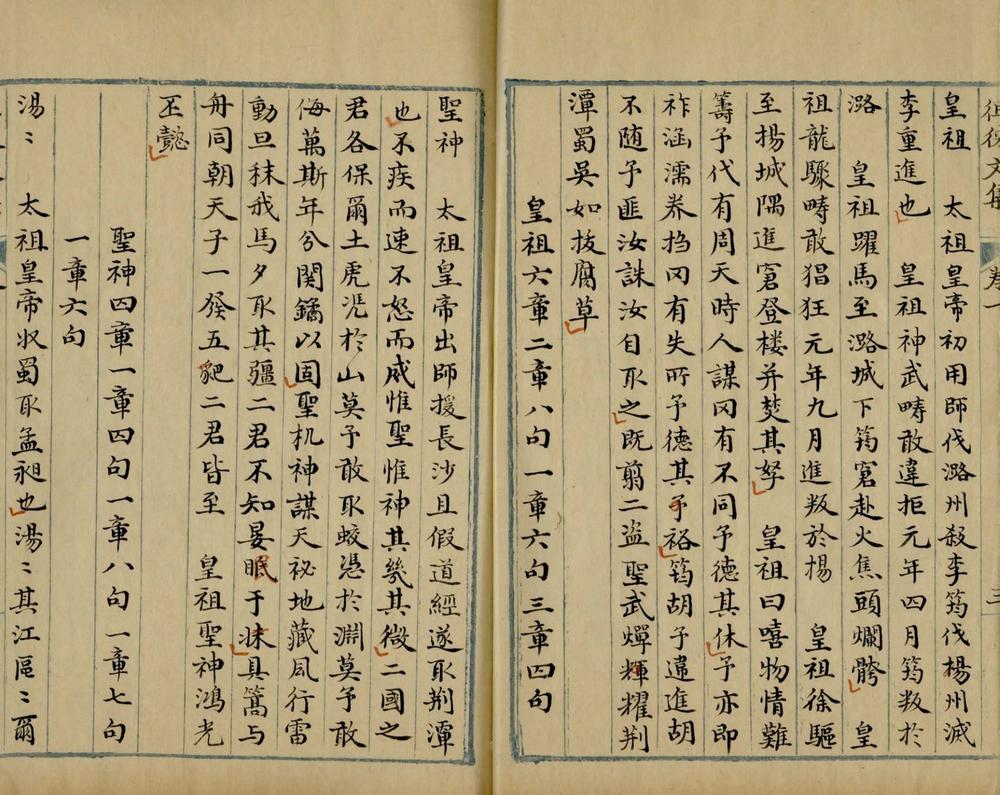 徂徠文集 卷一 三
皇祖 太祖皇帝初用師伐潞州殺李筠伐楊州滅
李重進也 皇祖神武疇敢違拒元年四月筠叛於
潞 皇祖躍馬至潞城下筠窘赴火焦頭爛髈 皇
祖龍驟疇敢猖狂元年九月進叛於揚 皇祖徐驅
至揚城隅進窘登楼并焚其孥 皇祖曰嘻物情難
籌予代有周天時人謀冈有不同予德其休予亦即
祚涵濡养㧽冈有失所予德其予裕筠胡予違進胡
不随予匪汝誅汝自取之既翦二盗聖武燀輝耀荆
潭蜀吳如拔腐草
皇祖六章二章八句一章六句三章四句
聖神 太祖皇帝出師援長沙且假道經遂取荆潭
也不疾而速不怒而威惟聖惟神其幾其微二國之
君各保爾土虎凭於山莫予敢取蛟憑於淵莫予敢
侮萬斯年兮関鐍以固聖机神謀天祕地藏風行雷
動旦秣我馬夕取其疆二君不知晏眠于牀具篙与
舟同朝天子一發五豝二君皆至 皇祖聖神鴻光
丕懿
聖神四章一章四句一章八句一章七句
一章六句
湯〻 太祖皇帝收蜀取孟昶也湯〻其江區〻爾